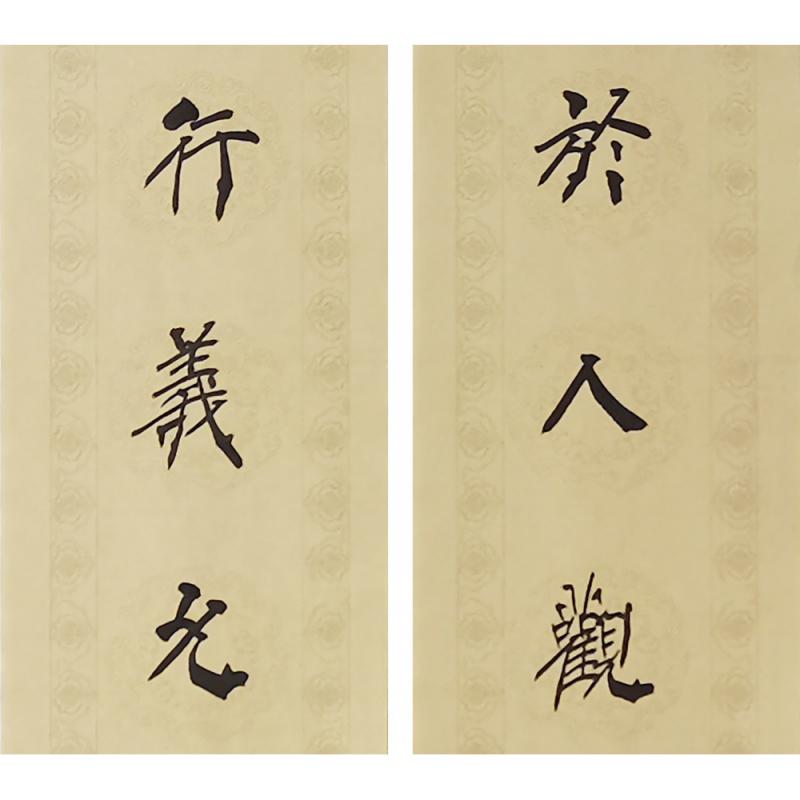 於人觀
行義允